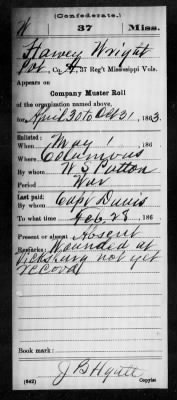 (Confederate.)
W 37 Miss.
Harvey Wright
Pvt, Co. H, 37 Reg't Mississippi Vols.
Appears on
Company Muster Roll
of the organization named above,
for April 30 to Oct 31, 1863.
Enlisted:
When May 1, 186
Where Columbus
By whom W S Patton
Period War
Last paid:
By whom Capt Davis
To what time Feb 28, 186
Present or absent Absent
Remarks: Wounded at
Vicksburg not yet
recovd
Book mark:
J B Hyatt
(642) Copyist.